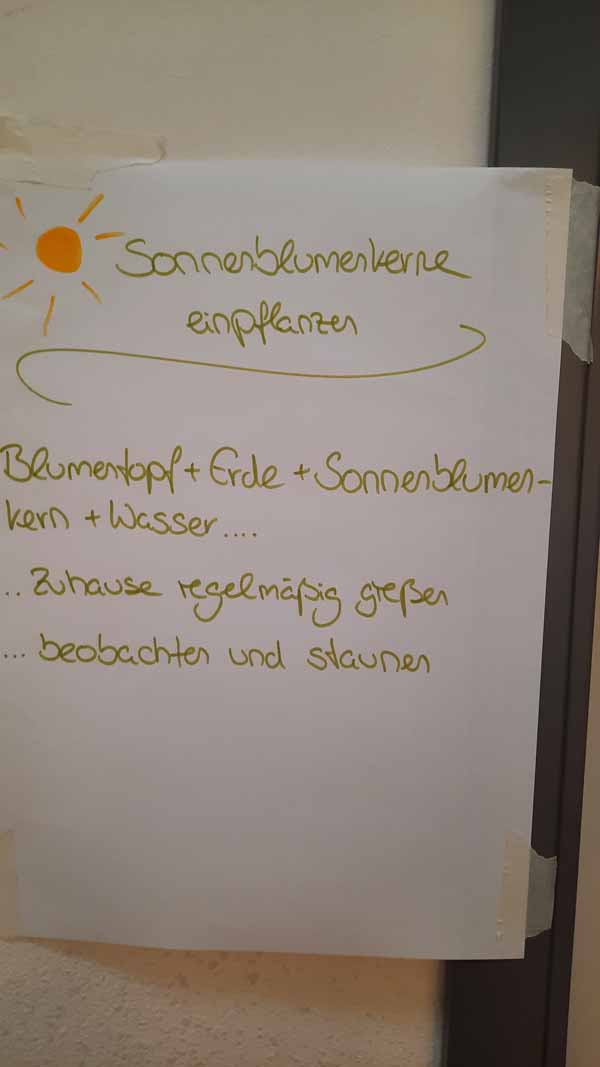 Sonnenblumenkerne
einpflanzen
Blumentopf + Erde + Sonnenblumen-
kern + Wasser....
.. Zuhause regelmäßig gießen
... beobachten und staunen